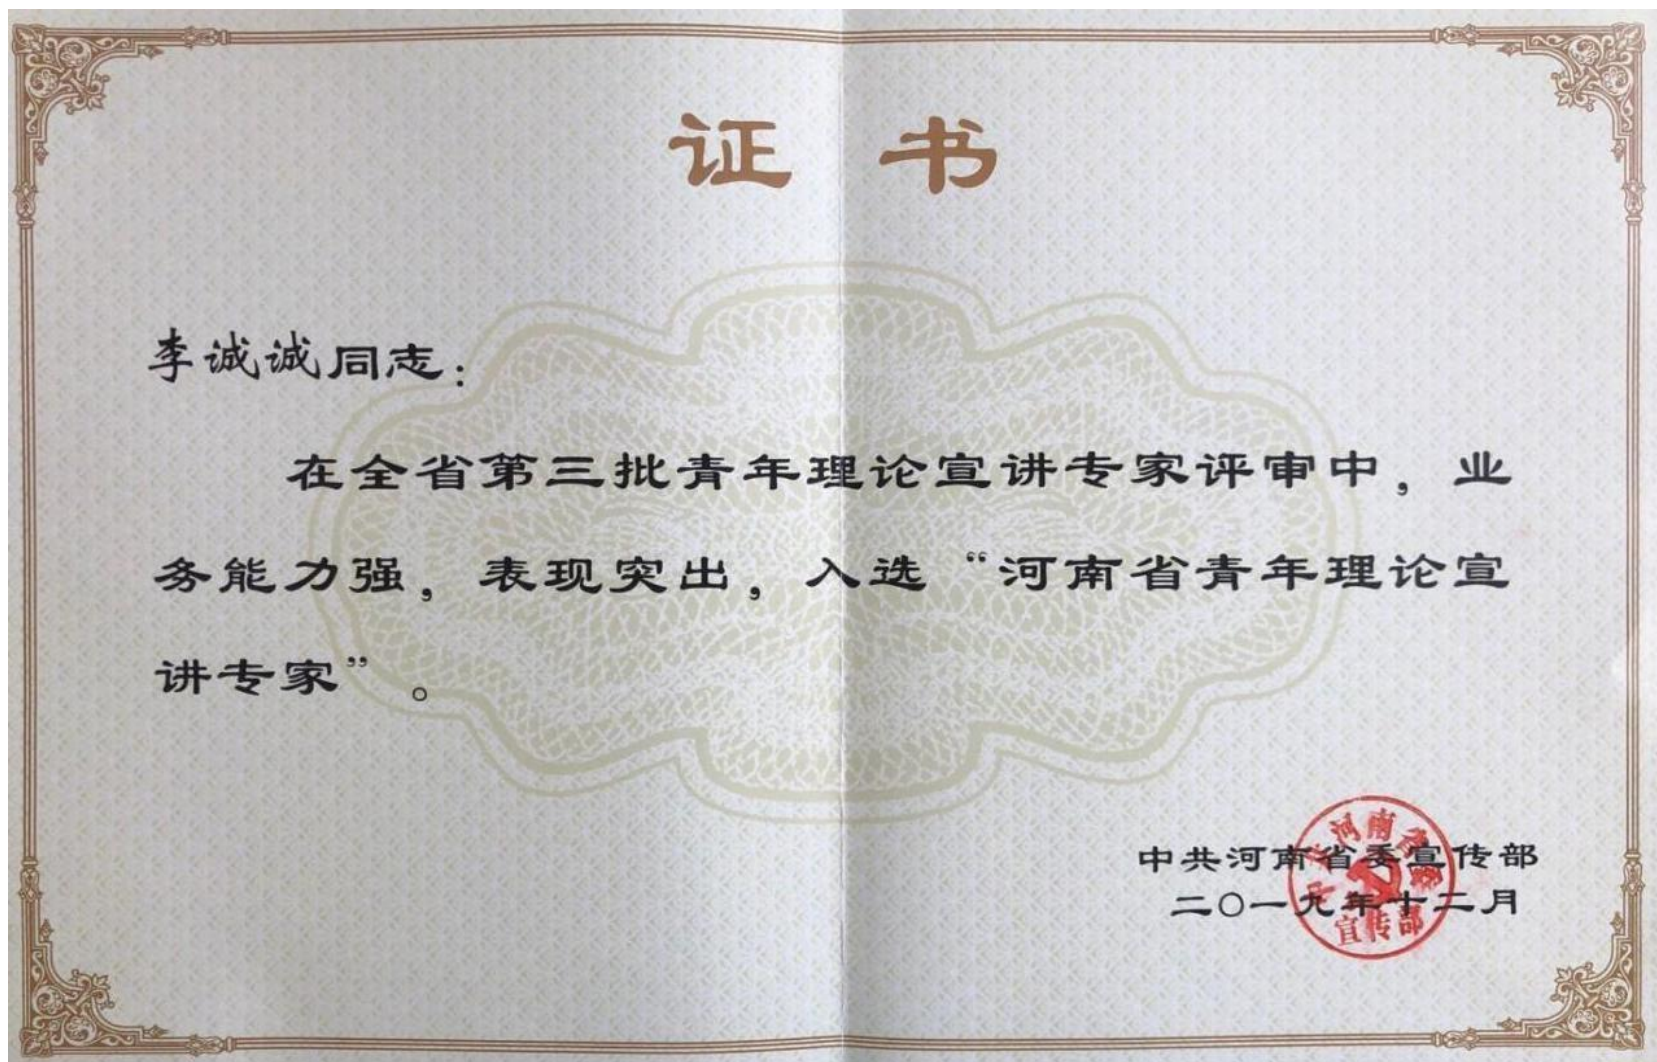 证 书
李诚诚同志：
在全省第三批青年理论宣讲专家评审中，业
务能力强，表现突出，入选“河南省青年理论宣
讲专家”。
中共河南省委宣传部
二〇一九年十二月
中共河南省委
宣传部